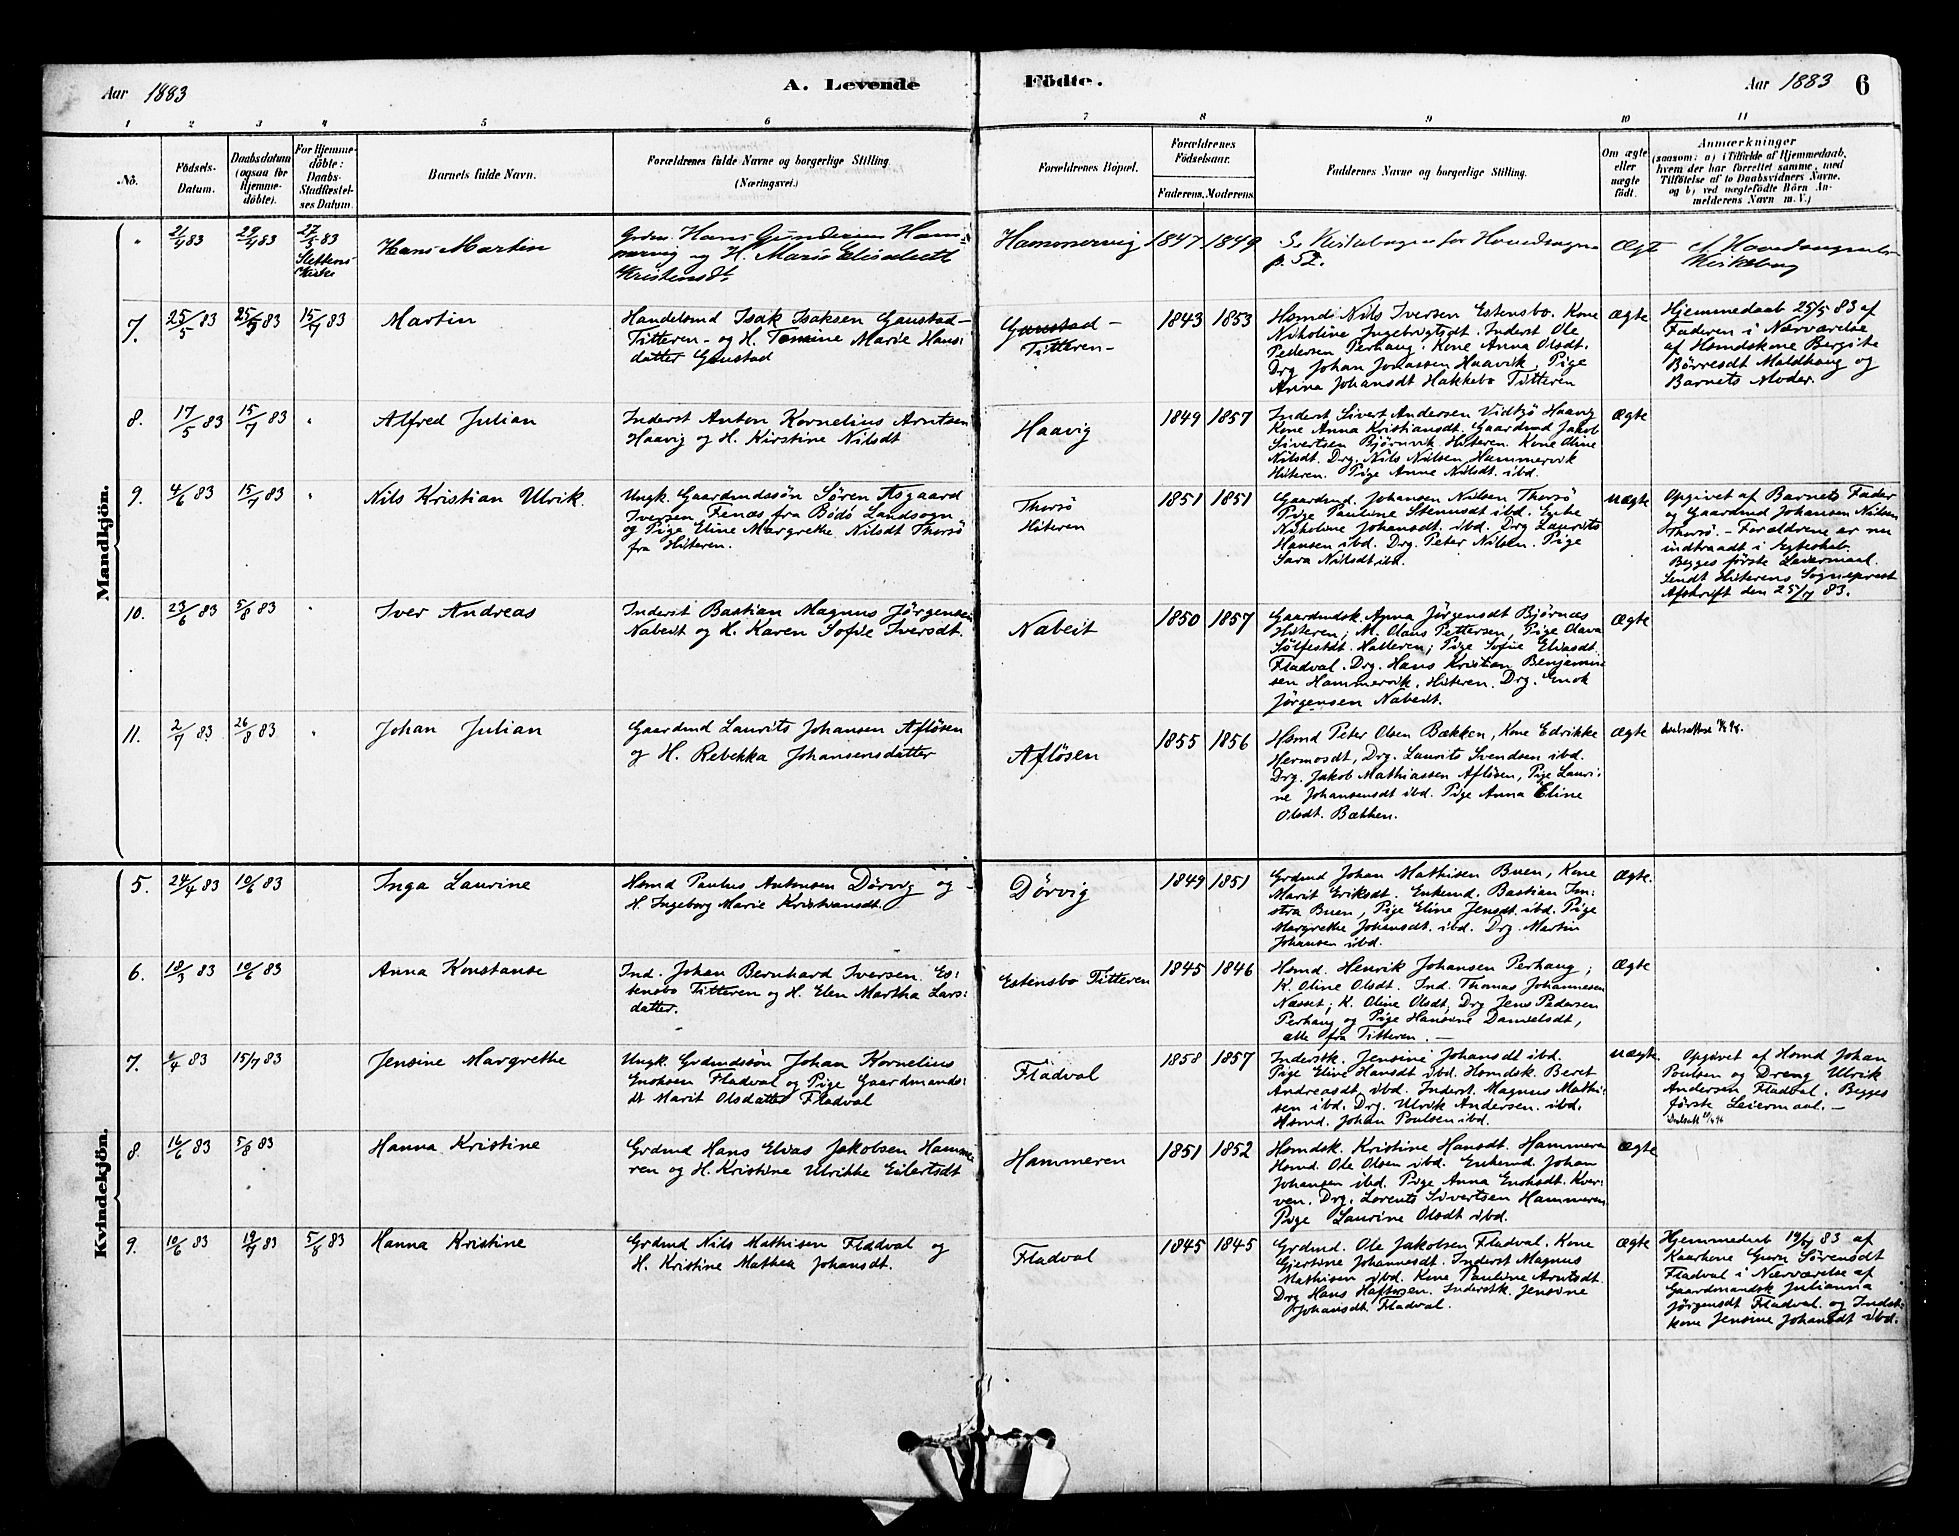 Aar 1883
A. Levende
Födte.
Aar 1883
6
1 2 3 4 5 6 7 8 9 10 11
No.
Födsels-
Datum.
Daabsdatum
(ogsaa for
Hjemme-
döbte).
For Hjemme-
döbte:
Daabs-
Stadfæstel-
ses Datum.
Barnets fulde Navn.
Forældrenes fulde Navne og borgerlige Stilling.
(Næringsvei.)
Forældrenes Bopæl.
Forældrenes
Födselsaar.
Faderens. Moderens.
Faddernes Navne og borgerlige Stilling.
Om ægte
eller
uægte
födt.
Anmærkninger
(saasom: a) i Tilfælde af Hjemmedaab,
hvem der har forrettet samme, med
Tilföielse af to Daabsvidners Navne,
og b) ved uægtefödte Börn An-
melderens Navn m. V.)
Mandkjön.
Hans Martin
Hans Gundersen Ham-
mervig og H. Marie Elisabeth
Kristensdt
Hammervig
1847 1849
Se Kirkebogen for Hovedsognet
p. 52.
Ægte
Hovedsognets
Kirkebog
7.
25/5 83
15/7 83
Martin
Handelsmd Isak Isaksen Gaustad-
Titteren- og H. Tomine Marie Hans-
datter Gaustad
Gaustad-
Titteren-
1843 1853
Hsmd Nils Iversen Estensbo. Kone
Nikoline Ingebrigtsdt. Inderst Ole
Pedersen Perhaug. Kone Anna Olsdt.
Drg Johan Jonassen Haavik. Pige
Anna Johansdt Hakkebo Titteren
ægte
Hjemmedaab 25/5 83 af
Faderen i Nærværelse
af Hsmdskone Bergite
Børresdt Moldhaug og
Barnets Moder.
8.
17/5 83
15/7 83
"
Alfred Julian
Inderst Anton Kornelius Arntsen
Haavig og H. Kirstine Nilsdt
Haavig
1849 1857
Inderst Sivert Andersen Vidtjø Haavig
Kone Anna Kristiansdt. Gaardmd Jakob
Sivertsen Bjørnvik Hiteren. Kone Oline
Nilsdt. Drg. Nils Nilsen Hammervik
Hiteren. Pige Anne Nilsdt. ibd.
ægte
9.
4/6 83
15/7 83
"
Nils Kristian Ulrik.
Ungk. Gaardmdssøn Søren Asgaard
Iversen Fenæs fra Bodø Landsogn
og Pige Eline Margrethe Nilsdt Thorsø
fra Hiteren.
Thorsø
Hiteren
1851 1851
Gaardmd. Johansen Nilsen Thorsø
Pige Pauline Stenusdt ibd. Enke
Nikoline Johansdt. ibd. Drg Laurits
Hansen ibd. Drg. Peter Nilsen. Pige
Sara Nilsdt ibd.
uægte
Opgivet af Barnets Fader
og Gaardmd Johansen Nilsen
Thorsø. - Forældrene er nu
indtraadt i Ægteskab.
Begges første Leiermaal.
Sendt Hiterens Sogneprest
Afskrift den 25/7 83.
10.
23/6 83
5/8 83
"
Iver Andreas
Inderst Bastian Magnus Jørgensen
Nabeit og H. Karen Sofie Iversdt.
Nabeit
1850 1857
Gaardmdsk. Anna Jørgensdt Bjørnæs
Hiteren; M. Olaus Pettersen, Pige Olava
Sølfestdt. Halteren; Pige Sofie Eliasdt
Fladval. Drg. Hans Kristian Benjamin-
sen Hammervik, Hiteren. Drg. Enok
Jørgensen Nabeit.
ægte
11.
2/7 83
26/8 83
"
Johan Julian
Gaardmd Laurits Johansen Afløsen
og H. Rebekka Johansensdatter
Afløsen
1855 1856
Hsmd Peter Olsen Bækken, Kone Edrikke
Hermosdt, Drg. Laurits Svendsen ibd.
Drg. Jakob Mathiassen Afløsen, Pige Lauri-
ne Johansensdt ibd. Pige Anna Eline
Olsdt. Bækken.
ægte
Kvindekjön.
5.
24/4 83
10/6 83
Inga Laurine
Hsmd Paulus Antonsen Dørvig og
H. Ingeborg Marie Kristiansdt.
Dørvig
1849 1851
Grdmd Johan Mathisen Buen, Kone
Marit Eriksdt. Enkemd. Bastian Im-
stra Buen, Pige Eline Jensdt. ibd. Pige
Margrethe Johansdt. ibd. Drg. Martin
Johansen ibd.
Ægte.
6.
10/6 83
Anna Konstanse
Ind. Johan Bernhard Iversen Es-
tensbo Titteren og H. Elen Martha Lars-
datter.
Estensbo Titteren
1845 1846
Hsmd. Henrik Johansen Perhaug;
K. Oline Olsdt. Ind. Thomas Johannesen
Næsset; K. Oline Olsdt, Drg Jens Pedersen
Perhaug og Pige Hansine Danielsdt,
alle fra Titteren. -
Ægte
7.
15/7 83
Jensine Margrethe
Ungk. Grdmdssøn Johan Kornelius
Enoksen Fladval og Pige Gaardmands-
dt Marit Olsdatter Fladval
Fladval
1858 1857
Inderstk. Jensine Johansdt ibd.
Pige Eline Hansdt ibd. Hsmdsk. Beret
Andreasdt ibd. Inderst. Magnus Mathi-
sen ibd. Drg. Ulrik Andersen. ibd.
Hsmd. Johan Poulsen ibd.
uægte.
Opgivet af Hsmd Johan
Poulsen og Dreng Ulrik
Andersen Fladval. Begges
første Leiermaal. -
8.
16/6 83
5/8 83
Hanna Kristine
Grdmd Hans Elias Jakobsen Hamme-
ren og H. Kristine Ulrikke Eilertsdt
Hammeren
1851 1852
Hsmdsk. Kristine Hansdt. Hammeren
Hsmd. Ole Olsen ibd. Enkemd. Johan
Johansen ibd. Pige Anna Enoksdt. Kver-
ven. Drg. Lorents Sivertsen Hammeren
Pige Laurine Olsdt ibd.
ægte
9.
10/6 83
19/7 83
5/8 83
Hanna Kristine
Grdmd Nils Mathisen Fladval og
H. Kristine Mathea Johansdt.
Fladval
1845 1845
Grdmd. Ole Jakobsen Fladval. Kone
Gjertine Johannesdt. Inderst Magnus
Mathisen ibd. Kone Pauline Arntsdt.
Drg Hans Haftorsen. Inderstk. Jensine
Johansdt. Fladval.
ægte
Hjemmedaab 19/7 83 af
Kaarkone Guru Sørensdt
Fladval i Nærværelse af
Gaardmandsk Julianna
Jørgensdt Fladval. og Inderst-
kone Jensine Johansdt ibd.